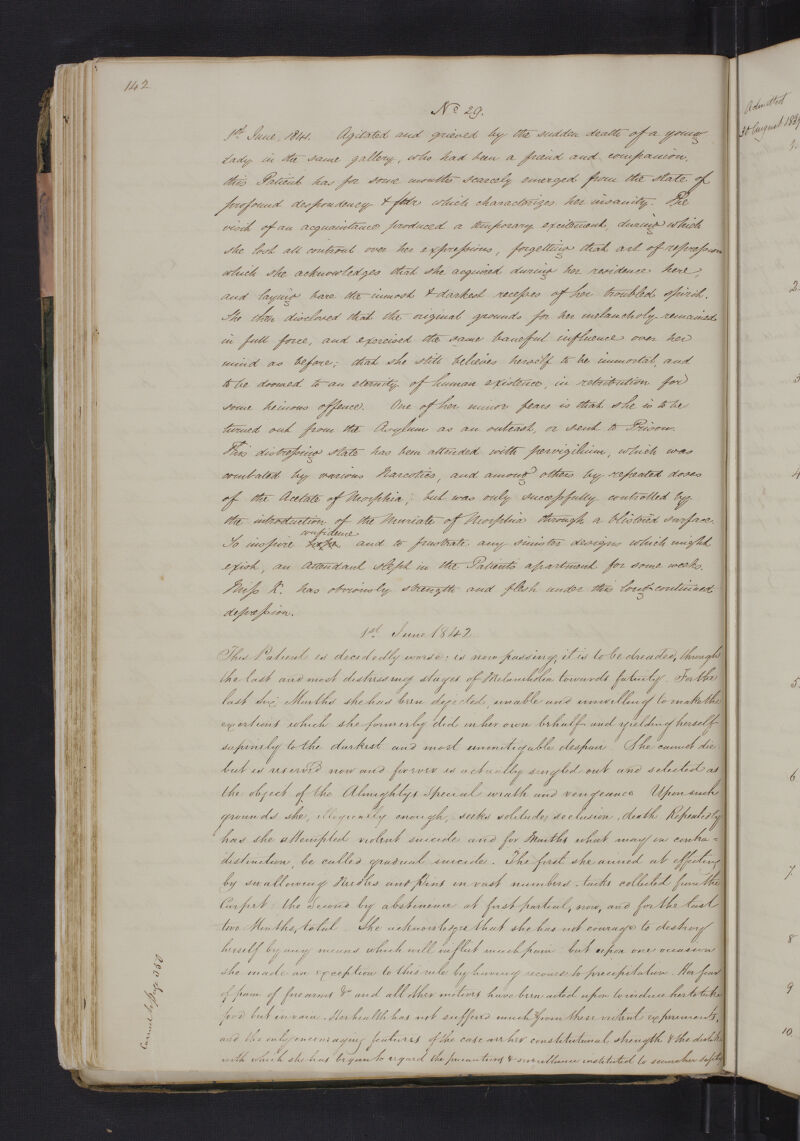 142
No 29.
1st June, 1841. Agitated and grieved by the sudden death of a young
Lady in the same gallery, who had been a friend and companion,
this Patient has for some months scarcely emerged from the state of
profound despondency & fear which characterizes her insanity. The
visit of an acquaintance produced a temporary excitement, during which
she lost all controul over her expressions, forgetting that art of repression
which she acknowledges that she acquired during her residence here,
and laying bare the inmost & darkest recesses of her troubled spirit.
She then disclosed that the original grounds for her melancholy remained
in full force, and exercised the same baneful influence over her
mind as before; that she still believes herself to be immortal, and
to be doomed to an eternity of human existence, in retribution for
some heinous offence. One of her minor fears is that she is to be
turned out from the Asylum as an outcast, or sent to Prison.
This distressing state has been attended with pervigilium, which was
combated by various Narcotics, and among others by repeated doses
of the Acetate of Morphia; but was only successfully controlled by
the introduction of the Muriate of Morphia through a blistered surface.
To inspire confidence and to frustrate any sinister designs which might
exist, an Attendant slept in the Patients apartment for some weeks.
Miss K. has obviously strength and flesh under this long-continued
depression.
1st June 1842
This Patient is decidedly worse: is now passing, it is to be dreaded, through
the last and most distressing stages of Melancholia towards fatuity. For the
last Six Months she has been dejected, unable and unwilling to make the
exertions which she formerly did in her own behalf and yielding herself
supinely to the darkest and most unmitigable despair. She cannot die
but is reserved now and forever is actually singled out and selected as
the object of the Almightys Special wrath and vengeance. Upon such
grounds she, illogically enough, seeks solitude, seclusion, death. Repeatedly
has she attempted violent suicide and for Months what may in contra=
distinction, be called gradual suicide. The first she aimed at effecting
by swallowing Needles and Pins in vast numbers, tacks collected from the
Carpet: the Second by abstinence at first partial, now, and for the last
two Months, total. She acknowledges that she has not courage to destroy
herself by any means which will inflict much pain: but upon one occasion
she made an exception to this rule by having recourse to precipitation. Her fear
of pain of firearms &c and all other motives have been acted upon to induce her to take
food but in vain. Her health has not suffered much from these violent experiments,
and the only encouraging features of the case are her constitutional strength & the dislike
with which she has begun to regard the precautions & surveillance instituted to secure her safety
Carried to page 350
Admitted
30 August 1839
1.
2.
3
4
5.
6
7
8
9
10